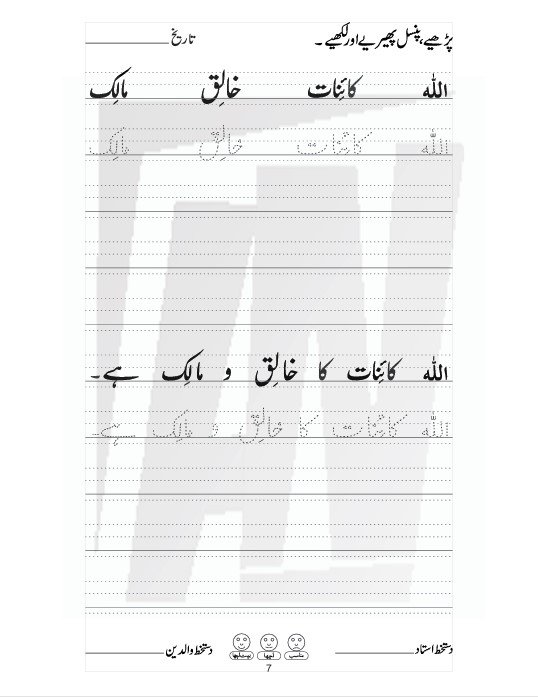 پڑھیے، پنسل پھیریے اور لکھیے۔ تاریخ
اللہ کائنات خالِق مالِک
اللہ کائنات خالِق مالِک
اللہ کائنات کا خالِق و مالِک ہے۔
اللہ کائنات کا خالِق و مالِک ہے۔
مناسب اچھا بہت اچھا
دستخط استاد دستخط والدین
7